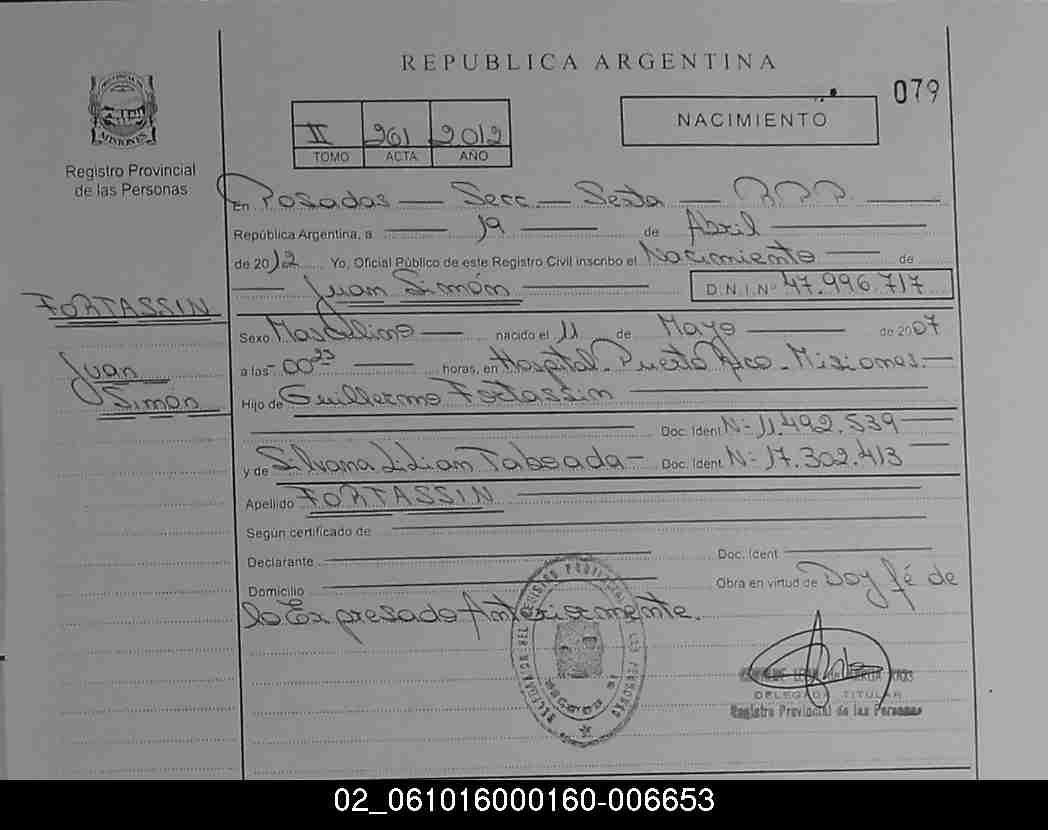 REPUBLICA ARGENTINA
079
II 261 2012
TOMO ACTA AÑO
NACIMIENTO
MISIONES
Registro Provincial
de las Personas
En Posadas — Secc — Sexta — R.P.P.
República Argentina, a 19 de Abril
de 2012 Yo, Oficial Público de este Registro Civil inscribo el Nacimiento de
Juan Simón D.N.I.Nº 47.996.717
FORTASSIN
Juan
Simón
Sexo Masculino nacido el 11 de Mayo de 2007
a las 00 23 horas, en Hospital - Puerto Rico - Misiones.
Hijo de Guillermo Fortassin
Doc. Ident Nº 11.492.539
y de Silvana Lilian Taboada Doc. Ident Nº 17.302.413
Apellido FORTASSIN
Según certificado de
Declarante Doc. Ident
Domicilio Obra en virtud de Doy fé de
lo Expresado Anteriormente.
DELEGADA TITULAR
Registro Provincial de las Personas
02_061016000160-006653